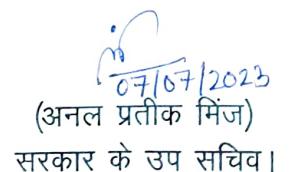 07/07/2023
(अनल प्रतीक मिंज)
सरकार के उप सचिव।